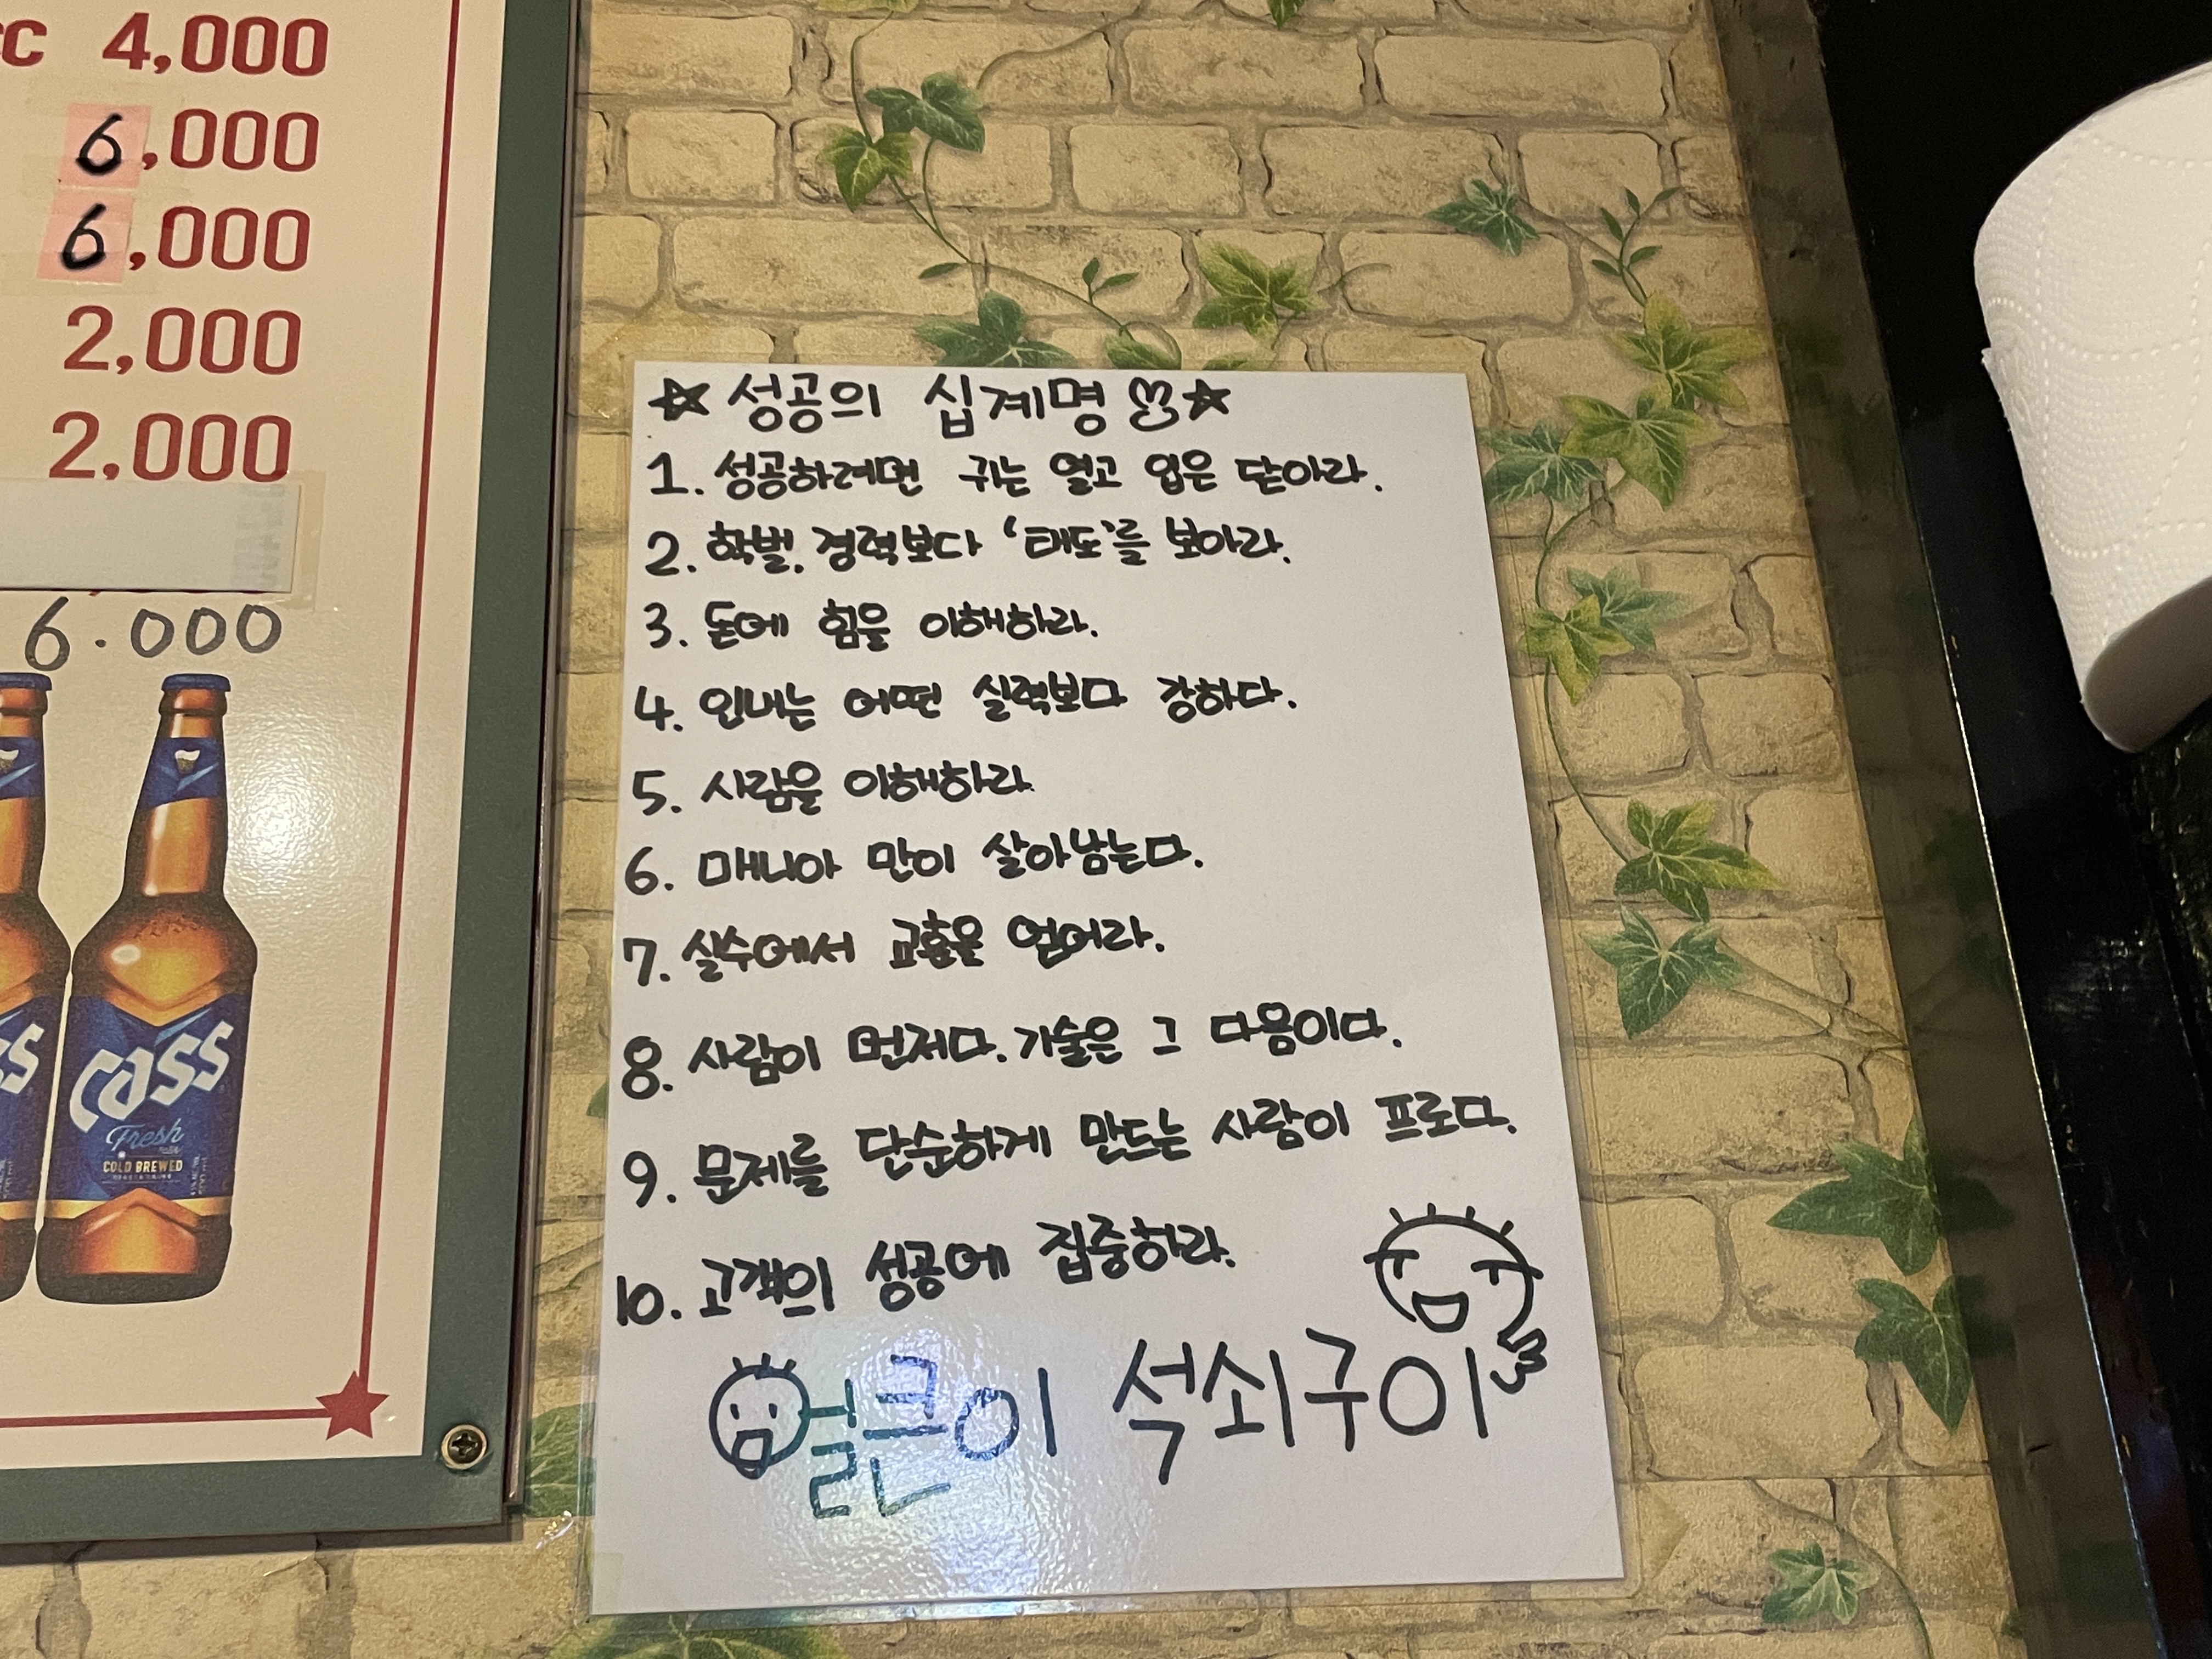 TC 4,000
6,000
6,000
2,000
2,000
6.000
Cass
Fresh
COLD BREWED
☆ 성공의 십계명 ☆
1. 성공하려면 귀는 열고 입은 닫아라.
2. 학벌, 경력보다 '태도'를 보아라.
3. 돈에 힘을 이해하라.
4. 인내는 어떤 실력보다 강하다.
5. 사람을 이해하라.
6. 매니아 만이 살아남는다.
7. 실수에서 교훈을 얻어라.
8. 사람이 먼저다. 기술은 그 다음이다.
9. 문제를 단순하게 만드는 사람이 프로다.
10. 고객의 성공에 집중하라.
얼큰이 석쇠구이